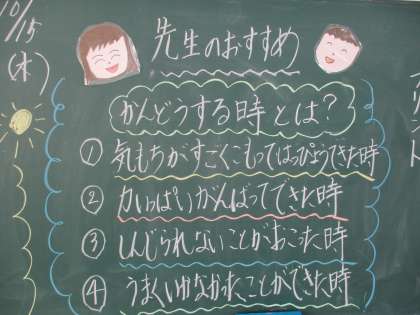 10/15
(木)
先生のおすすめ
かんどうする時とは?
① 気もちがすごくこもってはっぴょうできた時
② 力いっぱいがんばってできた時
③ しんじられないことがおこった時
④ うまくいかなかったことができた時